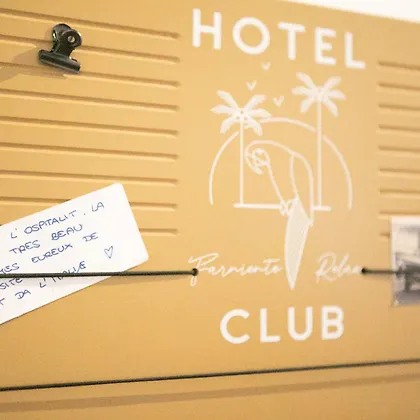 HOTEL
Farniente Relax
CLUB
L'OSPITALIT. LA
TRES BEAU
EUREUX DE
SITE
DA L'ITALIE ♡